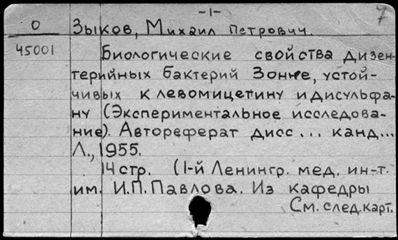 -1-
7
0
Зыков, Михаил Петрович.
45001
Биологические свойства дизен-
терийных бактерий Зонне, устой-
чивых к левомицетину и дисульфа-
ну (Экспериментальное исследова-
ние). Автореферат дисс... канд...
Л., 1955.
14 стр. (1-й Ленингр. мед. ин-т.
им. И.П. Павлова. Из кафедры
См. след. карт.